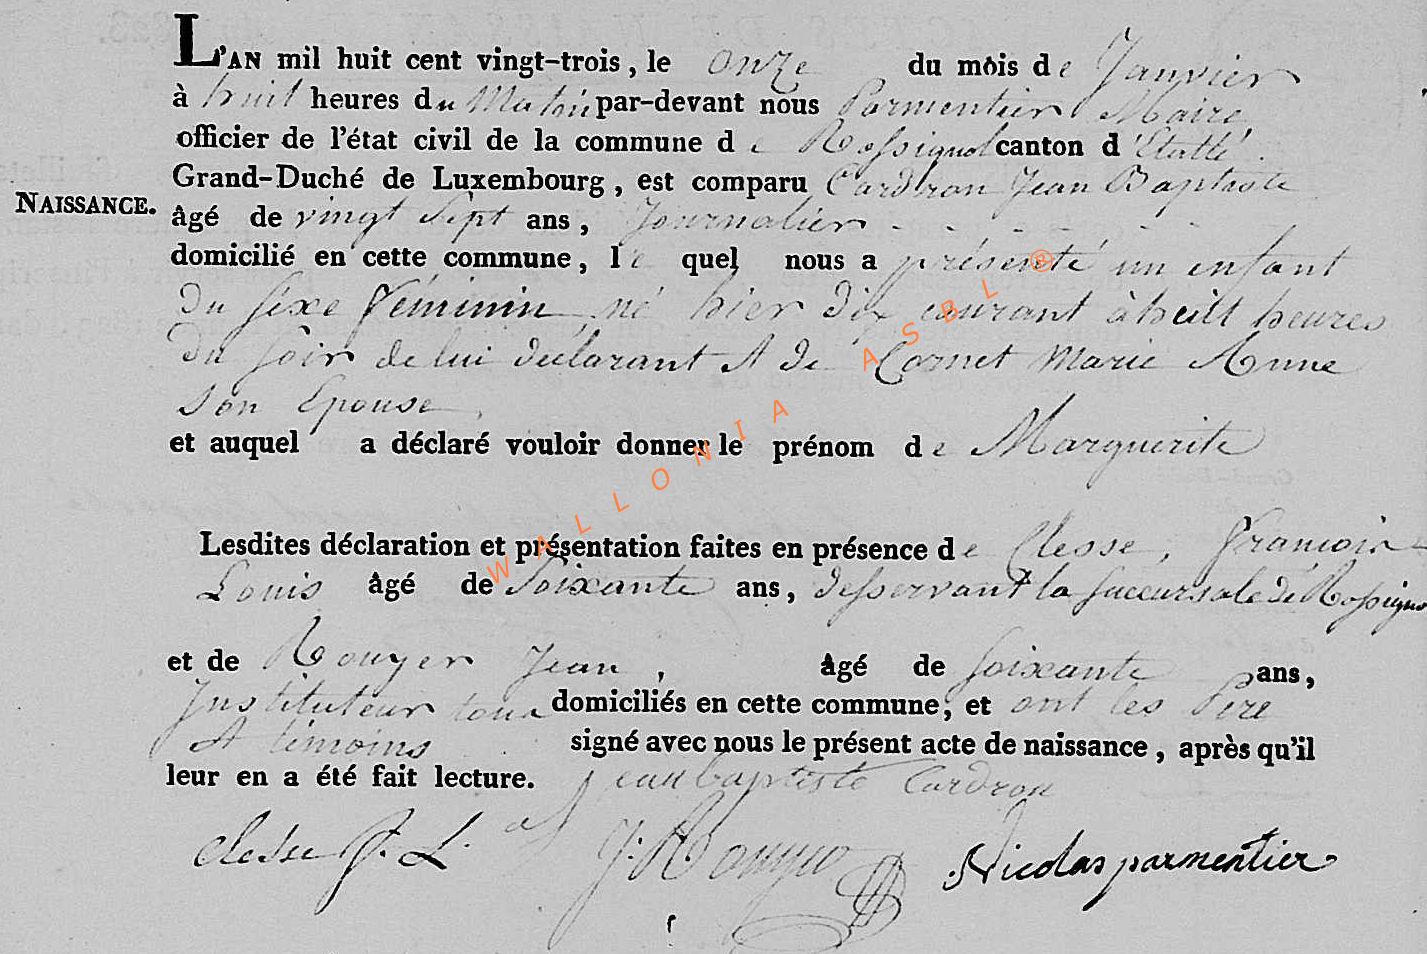 L'AN mil huit cent vingt-trois, le onze du mois de Janvier
à huit heures du Matin par-devant nous Parmentier Maire,
officier de l'état civil de la commune de Rossignol canton d'Etalle.
Grand-Duché de Luxembourg, est comparu Cardron Jean Baptiste
NAISSANCE.
âgé de vingt sept ans, Journalier
domicilié en cette commune, le quel nous a présenté un enfant
du sexe féminin, né hier dix courant à huit heures
du soir de lui déclarant et de Cornet Marie Anne
son Epouse,
et auquel a déclaré vouloir donner le prénom de Marguerite
Lesdites déclaration et présentation faites en présence de Clesse, François
Louis âgé de soixante ans, desservant la succursale de Rossignol
et de Rouyer Jean, âgé de soixante ans,
Instituteur tous domiciliés en cette commune; et ont les Père
et témoins signé avec nous le présent acte de naissance, après qu'il
leur en a été fait lecture. jean baptiste Cardron
clesse f. L. J. Rouyer Nicolas parmentier
WALLONIA ASBL ®